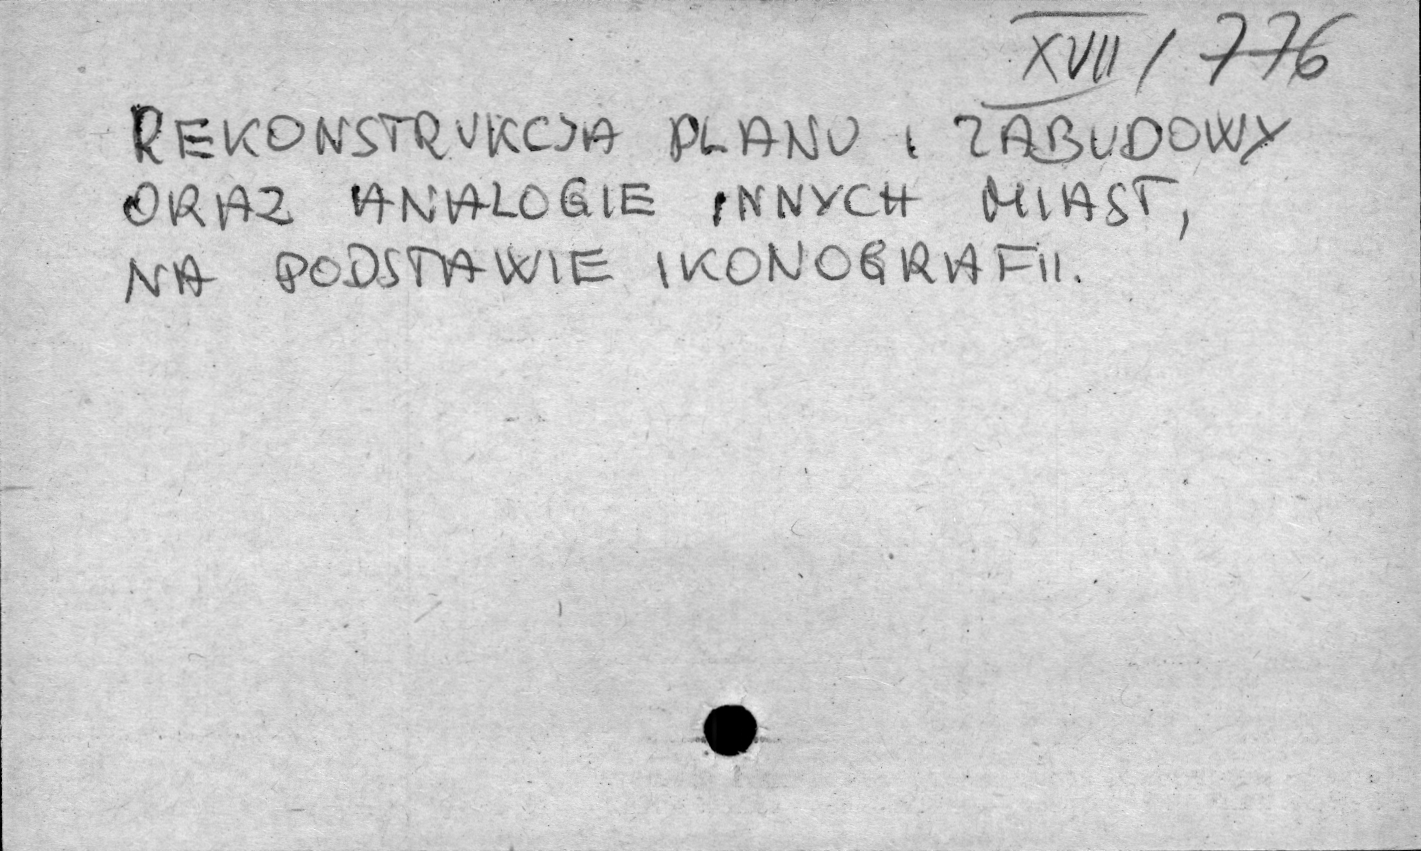 XVII / 776
REKONSTRUKCJA PLANU I ZABUDOWY
ORAZ ANALOGIE INNYCH MIAST,
NA PODSTAWIE IKONOGRAFII.